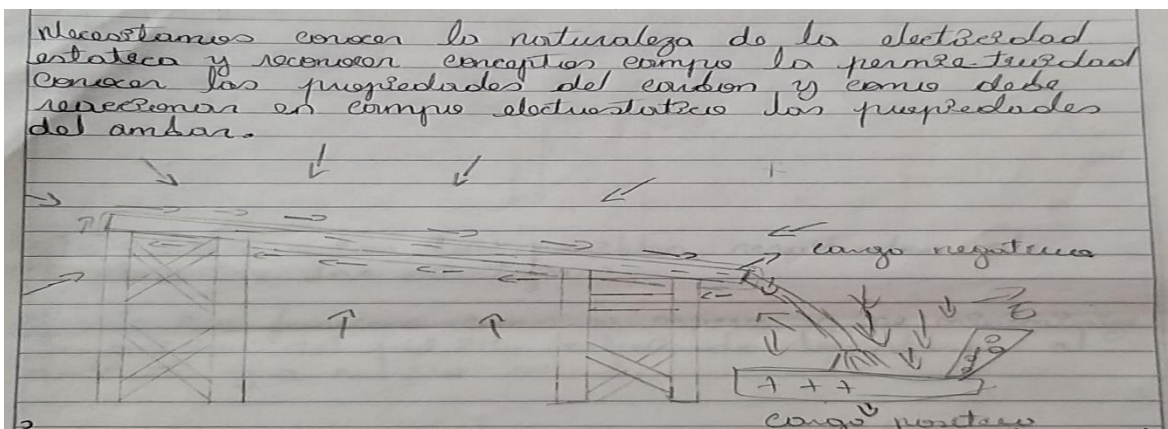 Necesitamos conocer la naturaleza de la electricidad
estatica y reconocer conceptos campo la permie-tividad
Conocer las propiedades del carbon y como debe
reaccionar en campo electrostatico las propiedades
del ambar.
carga negativa
E
+ + +
carga positiva